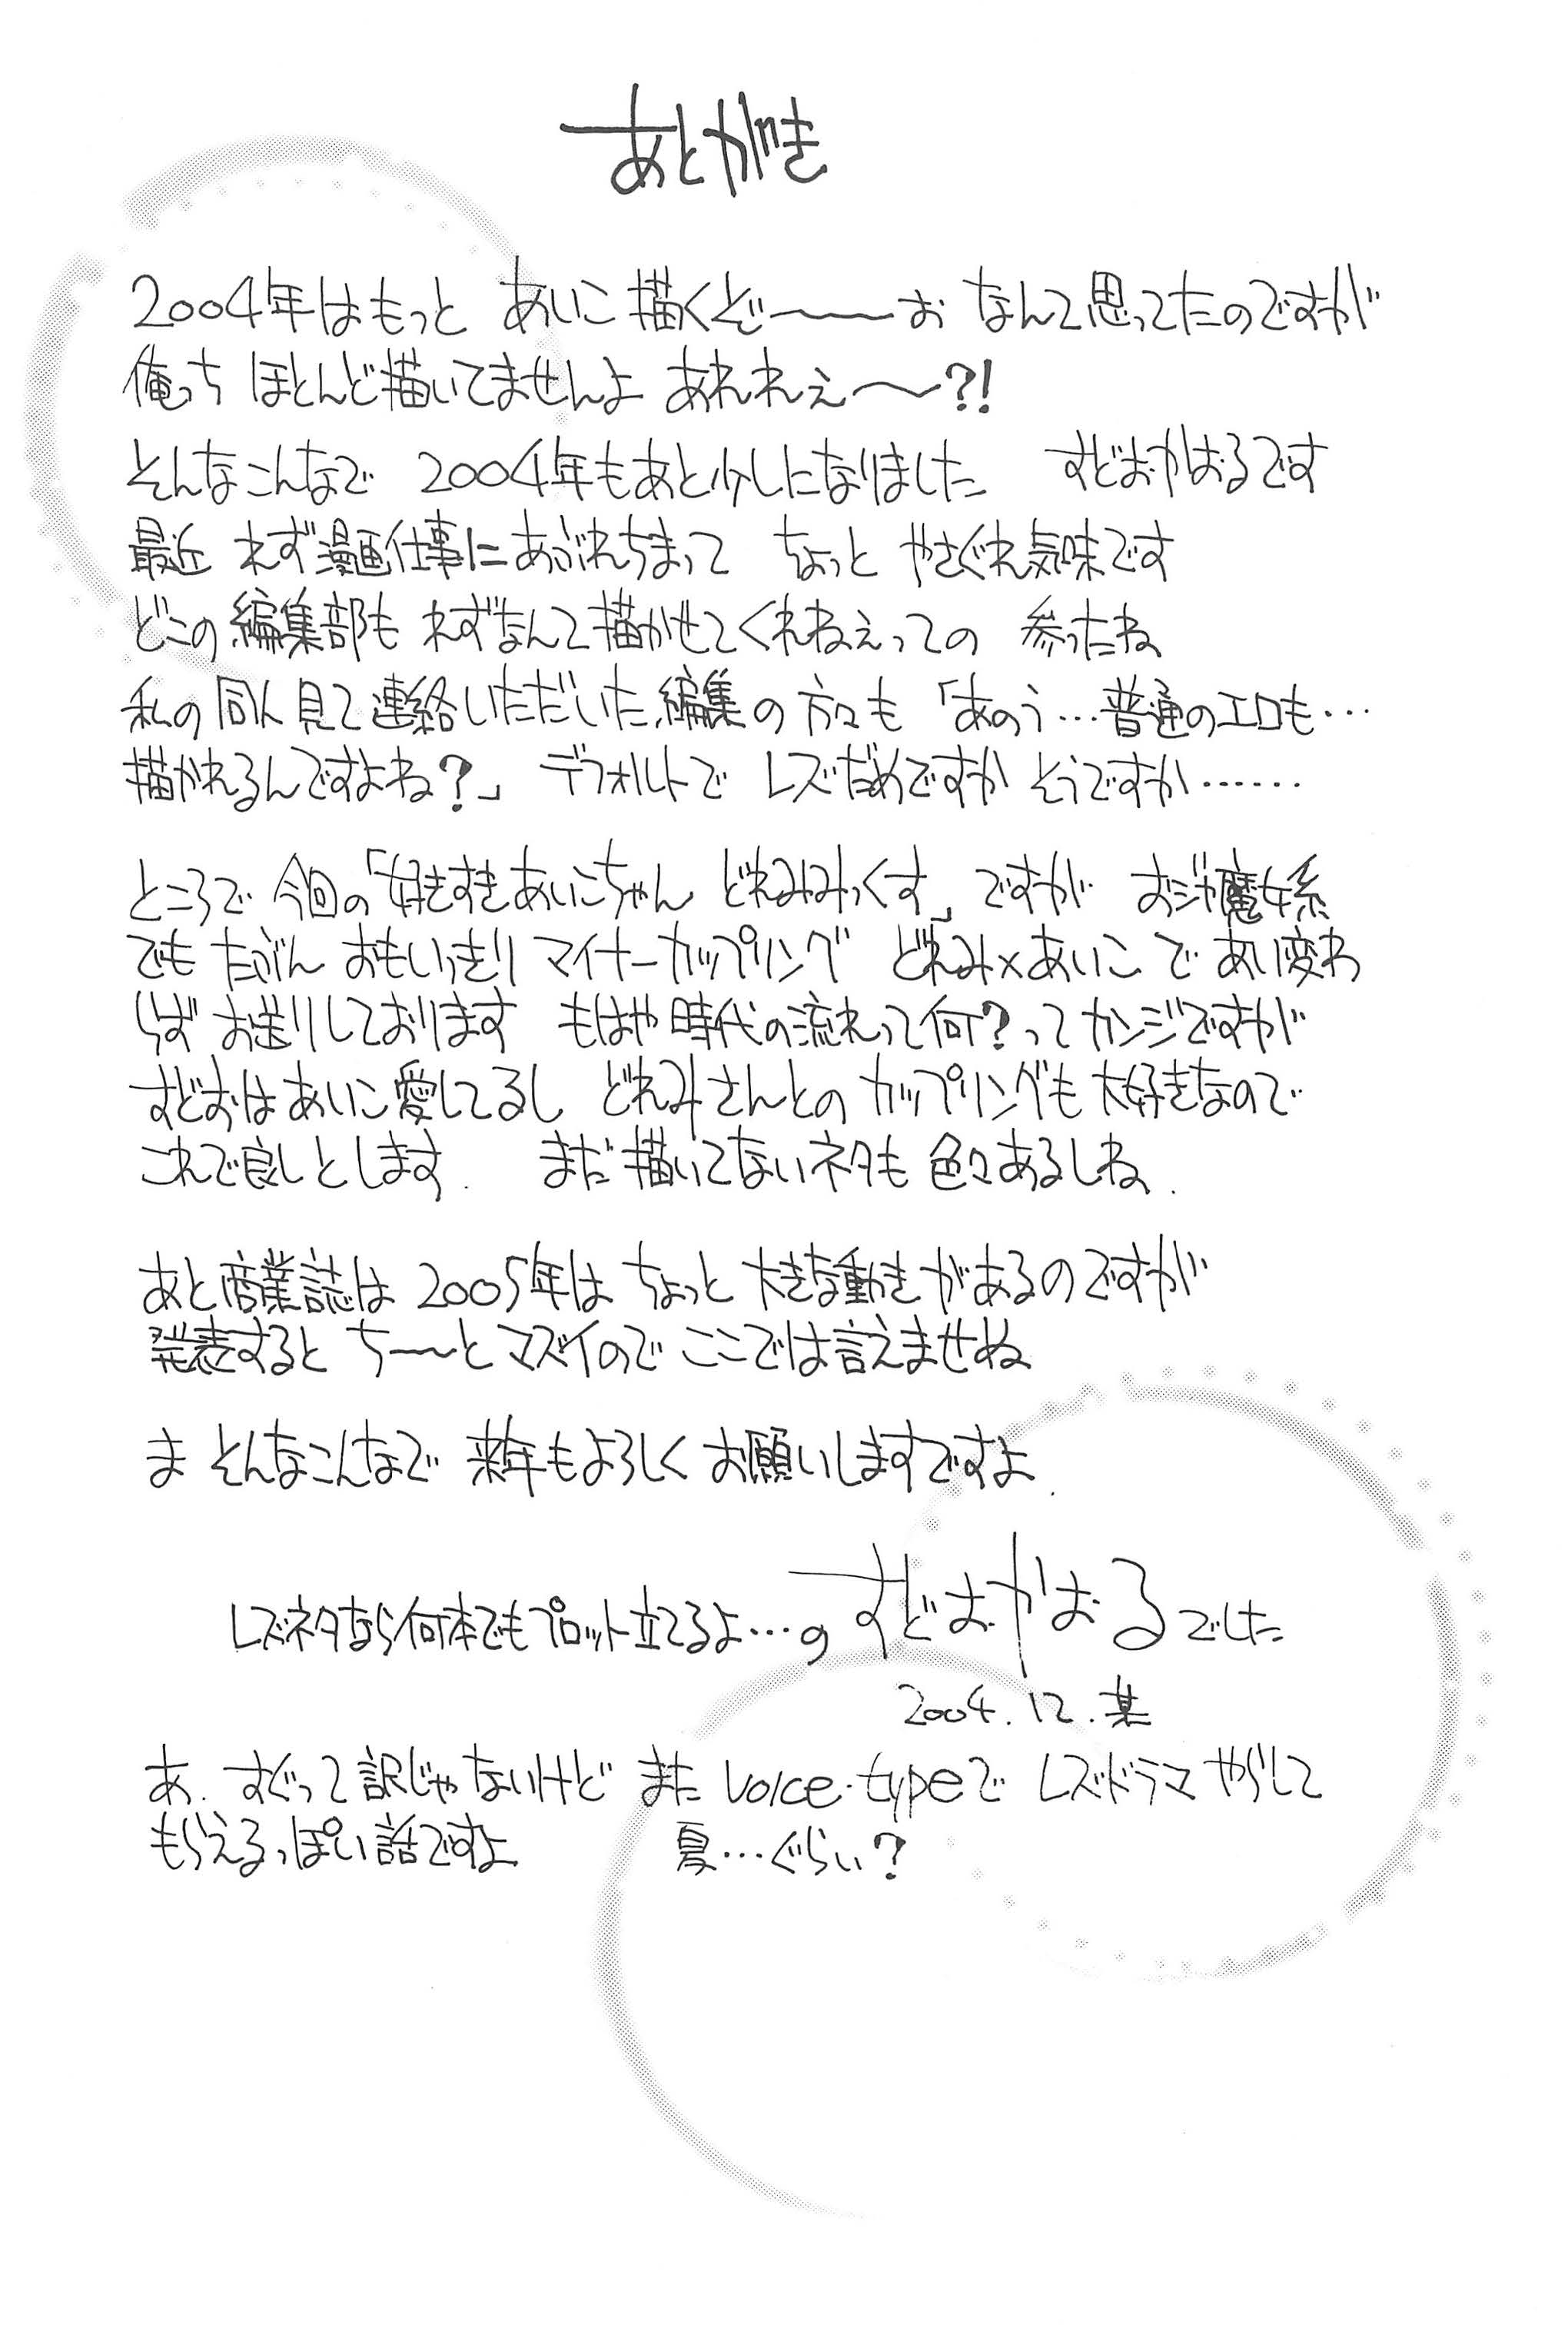 あとがき
2004年はもっと あいこ描くぞ〜〜〜お なんて思ってたのですが
俺っち ほとんど描いてませんよ あれれぇ〜?!
そんなこんなで 2004年もあと少しになりました すどおかおるです
最近 れず漫画仕事にあぶれちまって ちょっと やさぐれ気味です
どこの編集部も れずなんて描かせてくれねぇっての 参ったね
私の同人見て連絡いただいた編集の方々も「あのう…普通のエロも…
描かれるんですよね?」 デフォルトで レズだめですか そうですか……
ところで 今回の「好きすきあいこちゃん どれみみっくす」ですが おジャ魔女系
でも たぶん おもいっきり マイナーカップリング どれみ×あいこ で あい変わ
らず お送りしております もはや時代の流れって何?ってカンジですが
すどおはあいこ愛してるし どれみさんとの カップリングも大好きなので
これで良しとします. まだ描いてないネタも 色々あるしね.
あと商業誌は 2005年は ちょっと 大きな動きがあるのですが
発表すると ち〜とマズイので ここでは言えませぬ
ま そんなこんなで 来年もよろしく お願いしますですよ.
レズネタなら何本でもプロット立てるよ…の すどおかおるでした
2004.12.某
あ. すぐって訳じゃないけど また voice.typeで レズドラマ やらして
もらえるっぽい話ですよ 夏…ぐらい?